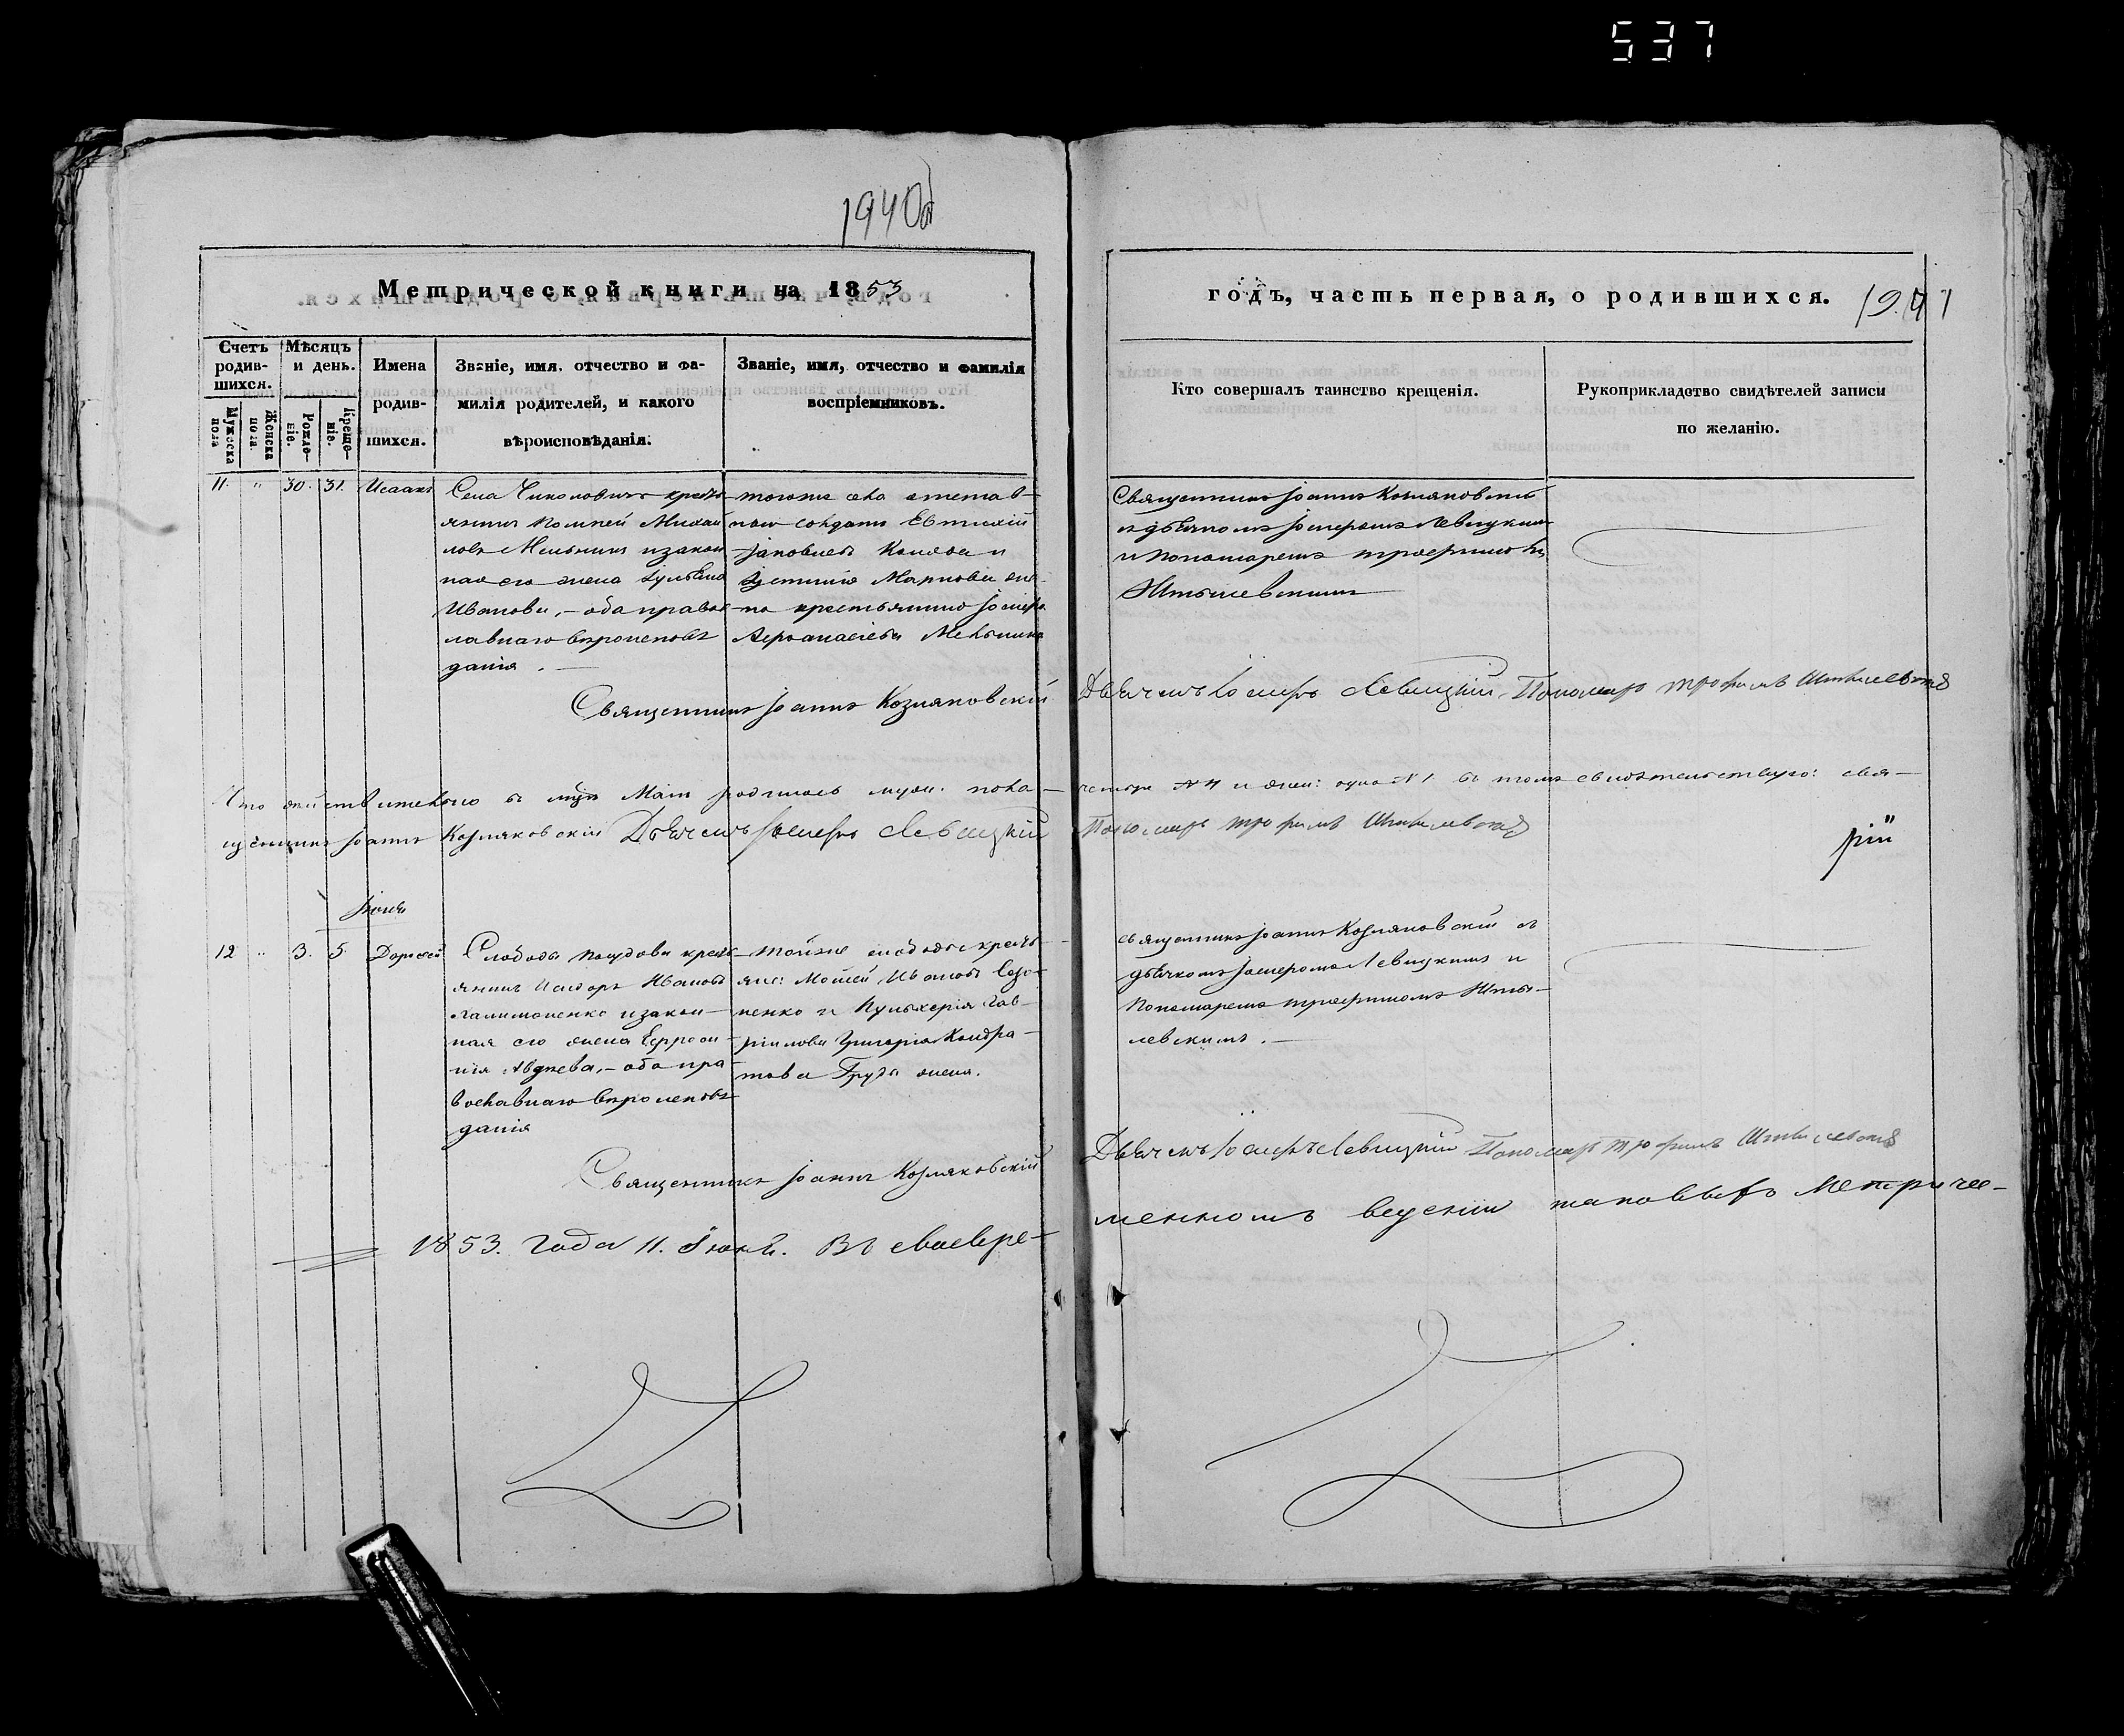 537
1940
Метрической книги на 1853
годъ, часть первая, о родившихся.
1941
Счетъ родив-шихся.
Мѣсяцъ и день.
Мужеска пола
Женска пола.
Рожде-ніе.
Креще-ніе.
Имена родив-шихся.
Званіе, имя, отчество и фа-
милія родителей, и какого
вѣроисповѣданія.
Званіе, имя, отчество и фамилія
воспріемниковъ.
Кто совершалъ таинство крещенія.
Рукоприкладство свидѣтелей записи
по желанію.
11. " 30. 31. Исаакъ
Села кресть-
янинъ Михай
ловъ Мельникъ и закон
ная его жена
Иванова, – оба правос
лавнаго вѣроисповѣ
данія.
тогоже села отстав-
ной солдатъ Евтихій
Яковлевъ и
Маркова же-
на крестьянина Іосифа
Аѳанасіева Мельника
Священникъ Іоаннъ Козляковскій
съ дьячкомъ Іосифомъ Левицкимъ
и пономаремъ Трофимомъ
Священникъ Іоаннъ Козляковскій
Дьячекъ Іосифъ Левицкій Пономарь Трофимъ
Что дѣйствительно въ Маіи родилось муж: пола –
четыре №4 и жен: одна №1 въ томъ свидѣтельствуютъ: свя-
щенникъ Іоаннъ Козляковскій Дьячекъ Іосифъ Левицкій
Пономарь Трофимъ
рій
Іюнь
12 " 3. 5. Дороѳей
Слободы кресть-
янинъ Исидоръ Ивановъ
и закон-
ная его жена Евфроси-
нія – оба пра-
вославнаго вѣроисповѣ
данія
тойже слободы кресть-
яне: Моисей Ивановъ
и Пульхерія Гав-
рілова Григорія Кондра-
това жена.
священникъ Іоаннъ Козляковскій съ
дьячкомъ Іосифомъ Левицкимъ и
пономаремъ Трофимомъ
левскимъ. –
Священникъ Іоаннъ Козляковскій
Дьячекъ Іосифъ Левицкій Пономарь Трофимъ
1853. Года 11. Іюня. Въ своевре-
менномъ веденіи таковыхъ Метриче-